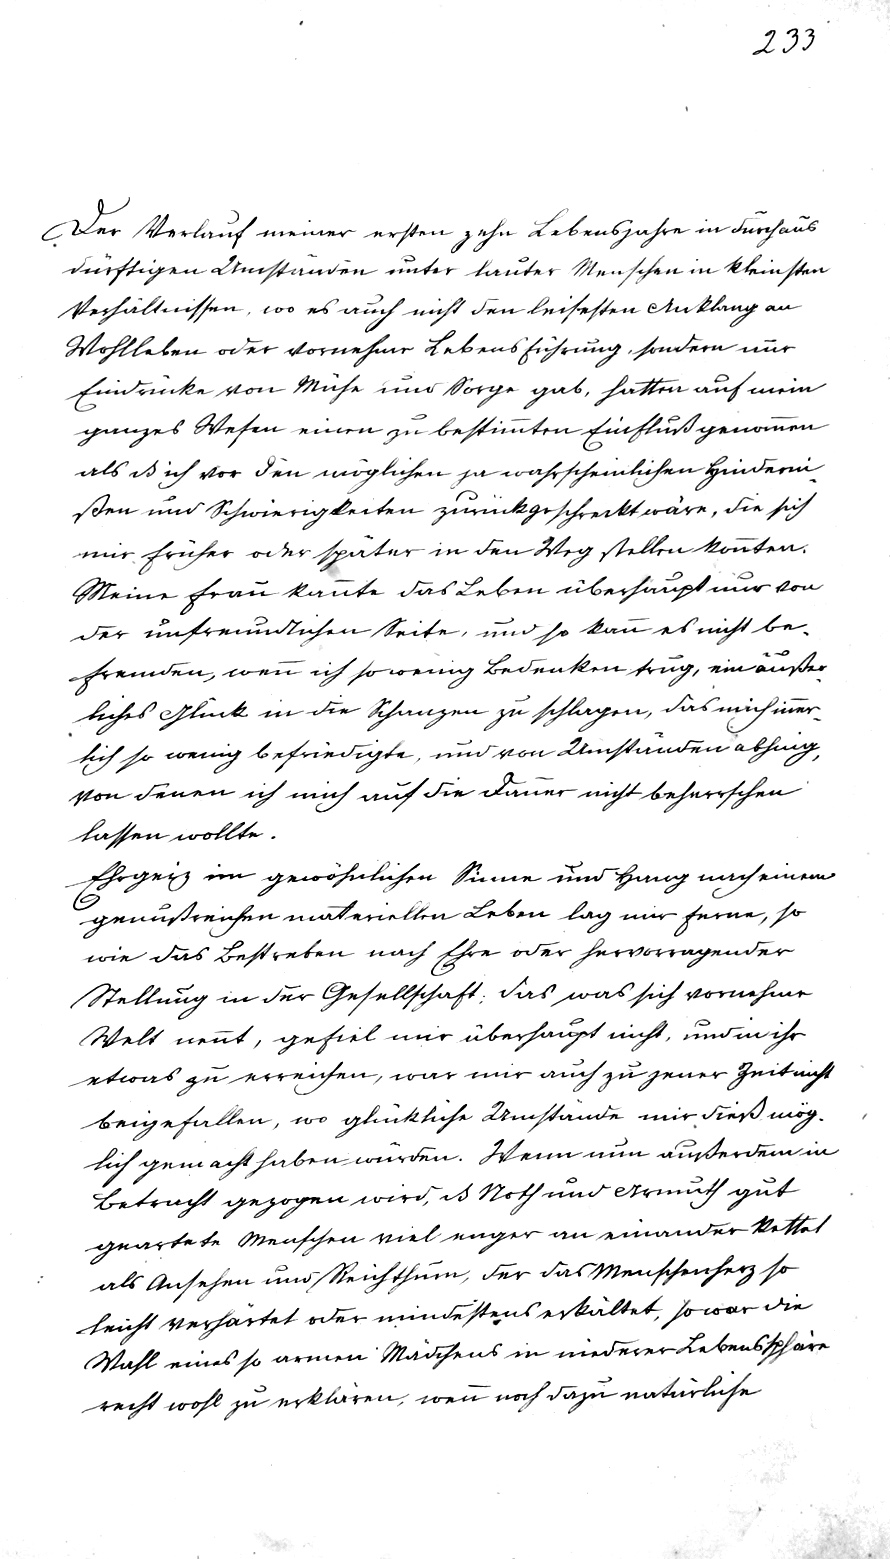 233
Der Verlauf meiner ersten zehn Lebensjahre in durchaus
dürftigen Umständen unter lauter Menschen in kleinsten
Verhältnissen, wo es auch nicht den leisesten Anklang an
Wohlleben oder vornehme Lebensführung, sondern nur
Eindrücke von Mühe und Sorge gab, hatten auf mein
ganzes Wesen einen zu bestim̄ten Einfluß genom̄en
als ich vor den möglichen ja wahrscheinlichen Hinderni-
ßen und Schwierigkeiten zurückgeschreckt wäre, die sich
mir früher oder später in den Weg stellen kon̄ten.
Meine Frau kan̄te das Leben überhaupt nur von
der unfreundlichen Seite, und so kan̄ es nicht be-
fremden, wen̄ ich so wenig Bedenken trug, ein äußer-
liches Glück in die Schanzen zu schlagen, das mich in̄er-
lich so wenig befriedigte, und von Umständen abhing,
von denen ich mich auf die Dauer nicht beherrschen
lassen wollte.
Ehrgeiz im gewöhnlichen Sinne und Hang nach einem
genußreichen materiellen Leben lag mir ferne, so
wie das Bestreben nach Ehre oder hervorragender
Stellung in der Gesellschaft; das was sich vornehme
Welt nen̄t, gefiel mir überhaupt nicht, und in ihr
etwas zu erreichen, war mir auch zu jener Zeit nicht
beigefallen, wo glückliche Umstände mir dieß mög-
lich gemacht haben würden. Wenn nun außerdem in
Betracht gezogen wird, Noth und Armuth gut
geartete Menschen viel enger an einander kettet
als Ansehen und Reichthum, der das Menschenherz so
leicht verhärtet oder mindestens erkältet, so war die
Wahl eines so armen Mädchens in niederer Lebenssphäre
recht wohl zu erklären, wen̄ noch dazu natürliche